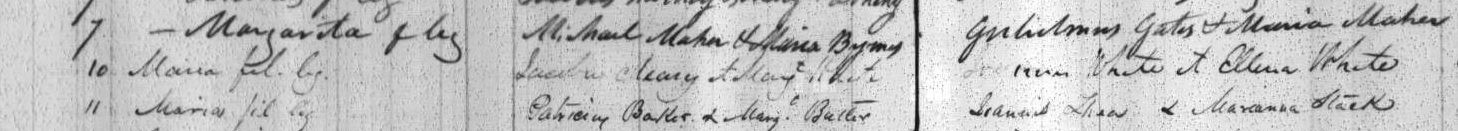 7 — Margarita f leg Michael Maher & Maria Byrnes Gulielmus Gates & Maria Maher
10 Maria fil. leg. Cleary et Marg.t White White et Ellena White
11 Maria fil leg Patricius Barker & Marg.t Butler Joannis Shea & Marianna Stack